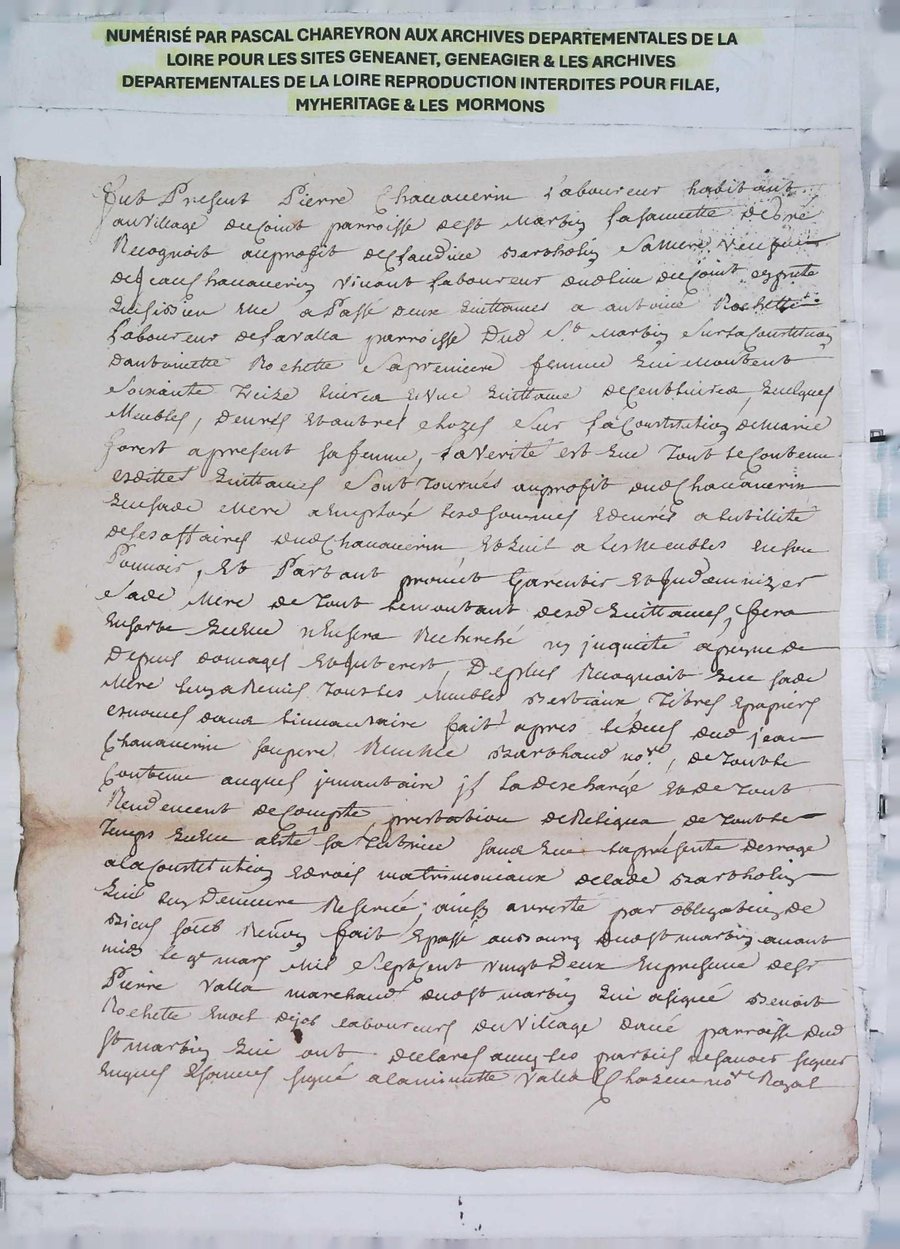 NUMÉRISÉ PAR PASCAL CHAREYRON AUX ARCHIVES DEPARTEMENTALES DE LA
LOIRE POUR LES SITES GENEANET, GENEAGIER & LES ARCHIVES
DEPARTEMENTALES DE LA LOIRE REPRODUCTION INTERDITES POUR FILAE,
MYHERITAGE & LES MORMONS
fut Present Pierre Chavaverin Laboureur habitant
au village du Coint parroisse de st Martin la sauvette de gré
Recognoit au profit de Claudine Bartholin sa mere veufve
de Jean Chavaverin vivant laboureur dud lieu du Coint
a Passé deux quittances a antoine Rochette
Laboureur de la valla parroisse Dud St Martin sur la Constitution
Dantoinette Rochette sa premiere femme qui montent
soixante treize livres, et une quittance de cent livres, quelques
Meubles, denrés et autres chozes sur la Constitution de Marie
forest a present sa femme, la verité est que tout le contenu
esdittes quittances sont tournés au profit dud Chavaverin
que sade mere a employé lesd sommes et denrés a lutillité
de ses affaires dud Chavaverin et quil a les meubles en son
Pouvoir, et Partant promet Garentir et Indemnizer
sade Mere de tout le montant desd quittances, fera
en sorte quelle n'en sera Recherché ny inquieté a peyne de
Depens domages et Interest, De plus Recognoit que sade
Mere luy a Remis tous les Meubles Bestiaux, titres & papiers
dans linvantaire fait apres le deces dud jean
Chavaverin son pere Barthaud nore, de tout le
Contenu auquel jnvantaire il la descharge et de tout
Rendement de Compte, prestation de Reliqua, de tout le
Temps quelle a été sa tutrice sans que la presente desroge
a la Constitution et drois matrimoniaux de lade Bartholin
qui luy Demeure Reservé; ainsy arresté par obligation de
Biens fait & passé au bourg dud st martin avant
midy le 9e mars Mil sept cent vingt Deux en presence de sr
Pierre Valla marchand dud st martin qui a signé Benoit
Rochette laboureurs du village parroisse dud
St martin qui ont declarés avec les parties ne savoir signer
enquis & sommés signé a la minutte Valla & Chazeux nore Royal